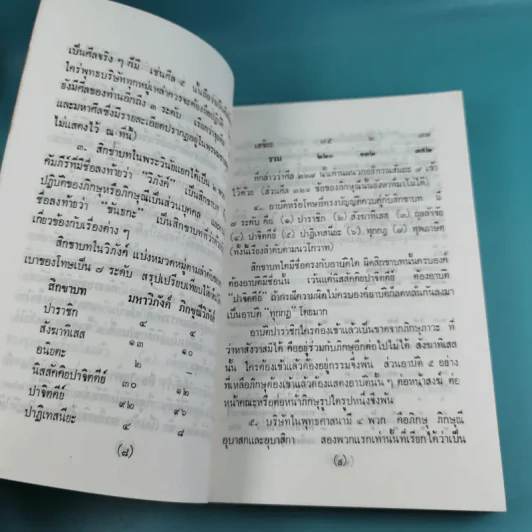 เป็นศีลจริง ๆ ก็มี เช่นศีล ๕
ใคร่พุทธบริษัททุกหมู่เหล่าควรจะต้อง
ยังมีศีลของท่านอีกถึง ๓ ระดับ
และมหาศีลซึ่งมีรายละเอียดปรากฏอยู่ใน
ไม่แสดงไว้ ณ ที่นี้)
๓. สิกขาบทในพระวินัยแยกได้เป็น
คัมภีร์ที่มีชื่อลงท้ายว่า "วิภังค์" เป็นสิกขาบท
ปฏิบัติของภิกษุหรือภิกษุณีเป็นส่วนบุคคล
ชื่อลงท้ายว่า "ขันธกะ" เป็นสิกขาบทที่ว่าด้วย
เกี่ยวข้องกับเรื่องต่าง ๆ
สิกขาบทในวิภังค์ แบ่งหมวดหมู่ตามลำดับ
เบาของโทษเป็น ๗ ระดับ สรุปเปรียบเทียบได้
สิกขาบท มหาวิภังค์ ภิกขุณีวิภังค์
ปาราชิก ๔ ๘
สังฆาทิเสส ๑๓ ๑๐
อนิยตะ ๒ –
นิสสัคคิยปาจิตตีย์ ๓๐ ๑๒
ปาจิตตีย์ ๙๒ ๙๖
ปาฏิเทสนียะ ๔ ๘
(๘)
เสขิยะ ๗๕
รวม ๒๒๐
ที่กล่าวว่าศีล ๒๒๗ นั้นท่านผนวกอธิกรณสมถะ ๗ เข้า
ไว้ด้วย (ส่วนศีล ๓๑๑ ข้อของภิกษุณีนั้นลงตาคืมาไม่ได้)
๔. อาบัติหรือโทษที่ทรงบัญญัติควบคู่กับสิกขาบท มี
๗ ระดับ คือ (๑) ปาราชิก (๒) สังฆาทิเสส (๓) ถุลลัจจัย
(๔) ปาจิตตีย์ (๕) ปาฏิเทสนียะ (๖) ทุกกฏ (๗) ทุพภาษิต
(ทั้งนี้เรียงลำดับตามนวโกวาท)
สิกขาบทใดมีชื่อตรงกับอาบัติใด ผิดสิกขาบทนั้นครบองค์
ต้องอาบัติมีชื่อนั้น เว้นแต่นิสสัคคิยปาจิตตีย์ ต้องอาบัติ
"ปาจิตตีย์" ถ้ากรณีความผิดไม่ครบองค์อาบัติก็ลดหลั่นกันลงมา
เป็นอาบัติ "ทุกกฏ" โดยมาก
อาบัติปาราชิกใครต้องเข้าแล้วเป็นขาดจากภิกษุภาวะ ที่
ว่าหาสังวาสมิได้ คืออยู่ร่วมกับภิกษุอีกต่อไปไม่ได้ สังฆาทิเสส
นั้น ใครต้องเข้าแล้วต้องอยู่กรรมจึงพ้น ส่วนอาบัติ ๕ อย่าง
ที่เหลือภิกษุต้องเข้าแล้วต้องแสดงอาบัตินั้น ๆ ต่อหน้าสงฆ์ ต่อ
หน้าคณะหรือต่อหน้าภิกษุรูปใดรูปหนึ่งจึงพ้น
๕. บริษัทในพุทธศาสนามี ๔ พวก คือภิกษุ ภิกษุณี
อุบาสกและอุบาสิกา สองพวกแรกเท่านั้นที่เรียกได้ว่าเป็น
(๙)